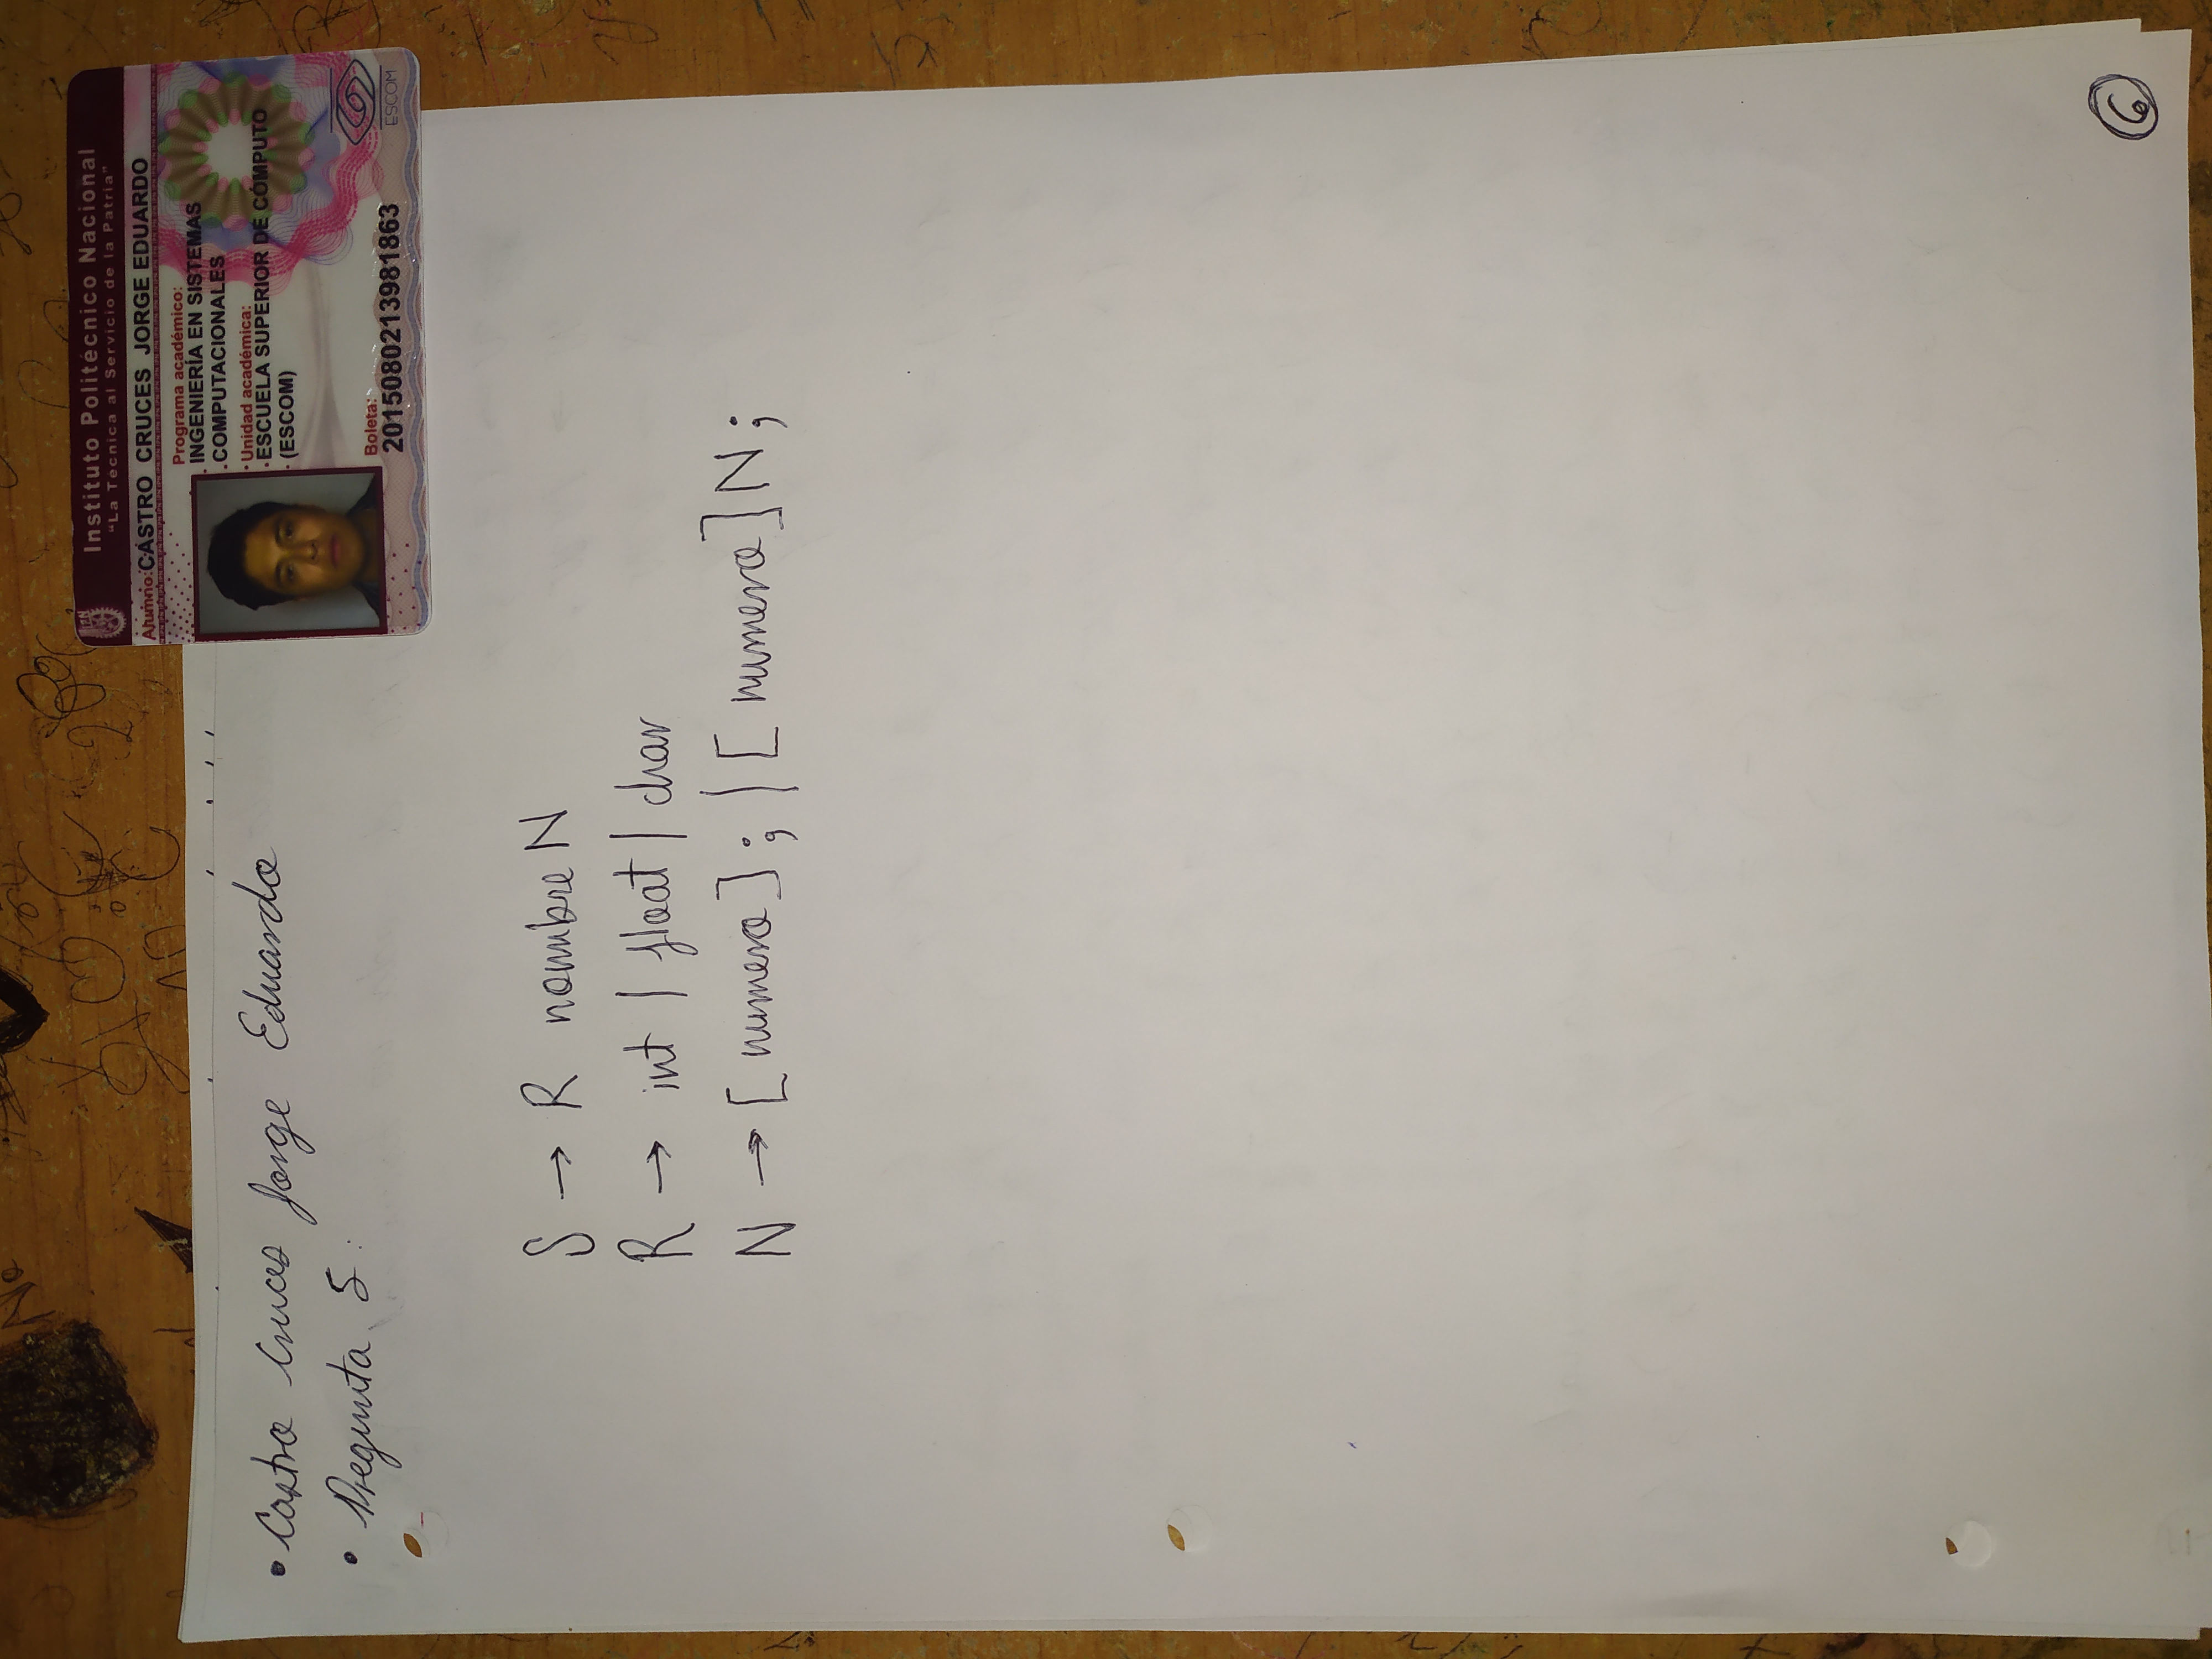 Instituto Politécnico Nacional
"La Técnica al Servicio de la Patria"
Alumno: CASTRO CRUCES JORGE EDUARDO
Programa académico:
INGENIERÍA EN SISTEMAS
COMPUTACIONALES
Unidad académica:
ESCUELA SUPERIOR DE CÓMPUTO
(ESCOM)
Boleta:
2015080213981863
ESCOM
• Castro Cruces Jorge Eduardo
• Pregunta 5:
S → R nombre N
R → int | float | char
N → [ numero ] ; | [ numero ] N ;
6